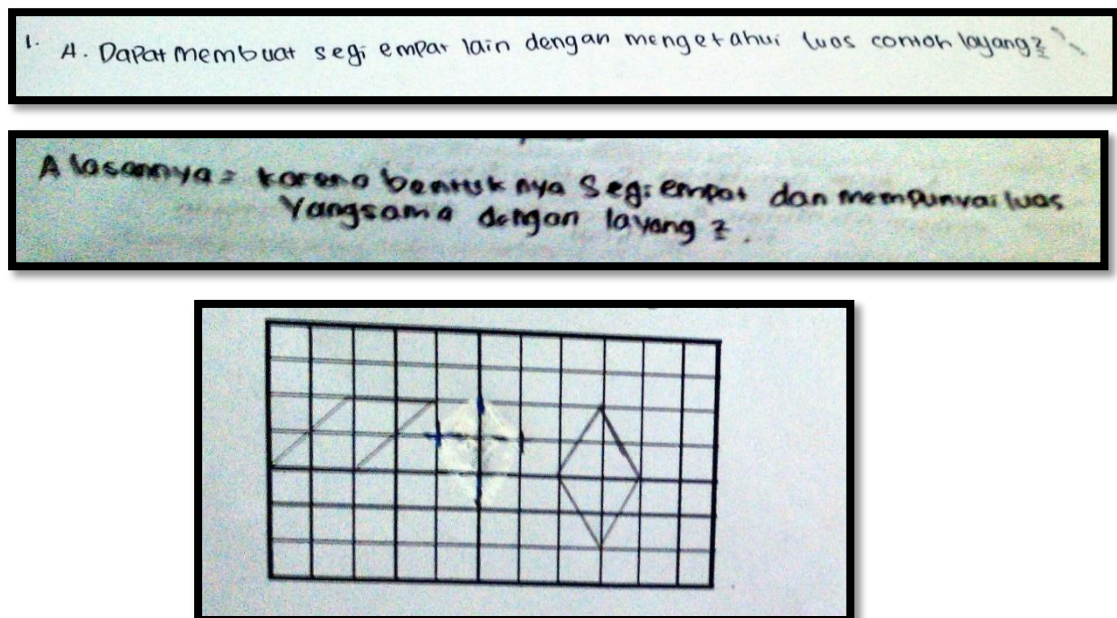 1. A. Dapat membuat segi empat lain dengan mengetahui luas contoh layang2
Alasannya = karena bentuk nya Segi empat dan mempunyai luas
Yang sama dengan layang 2.